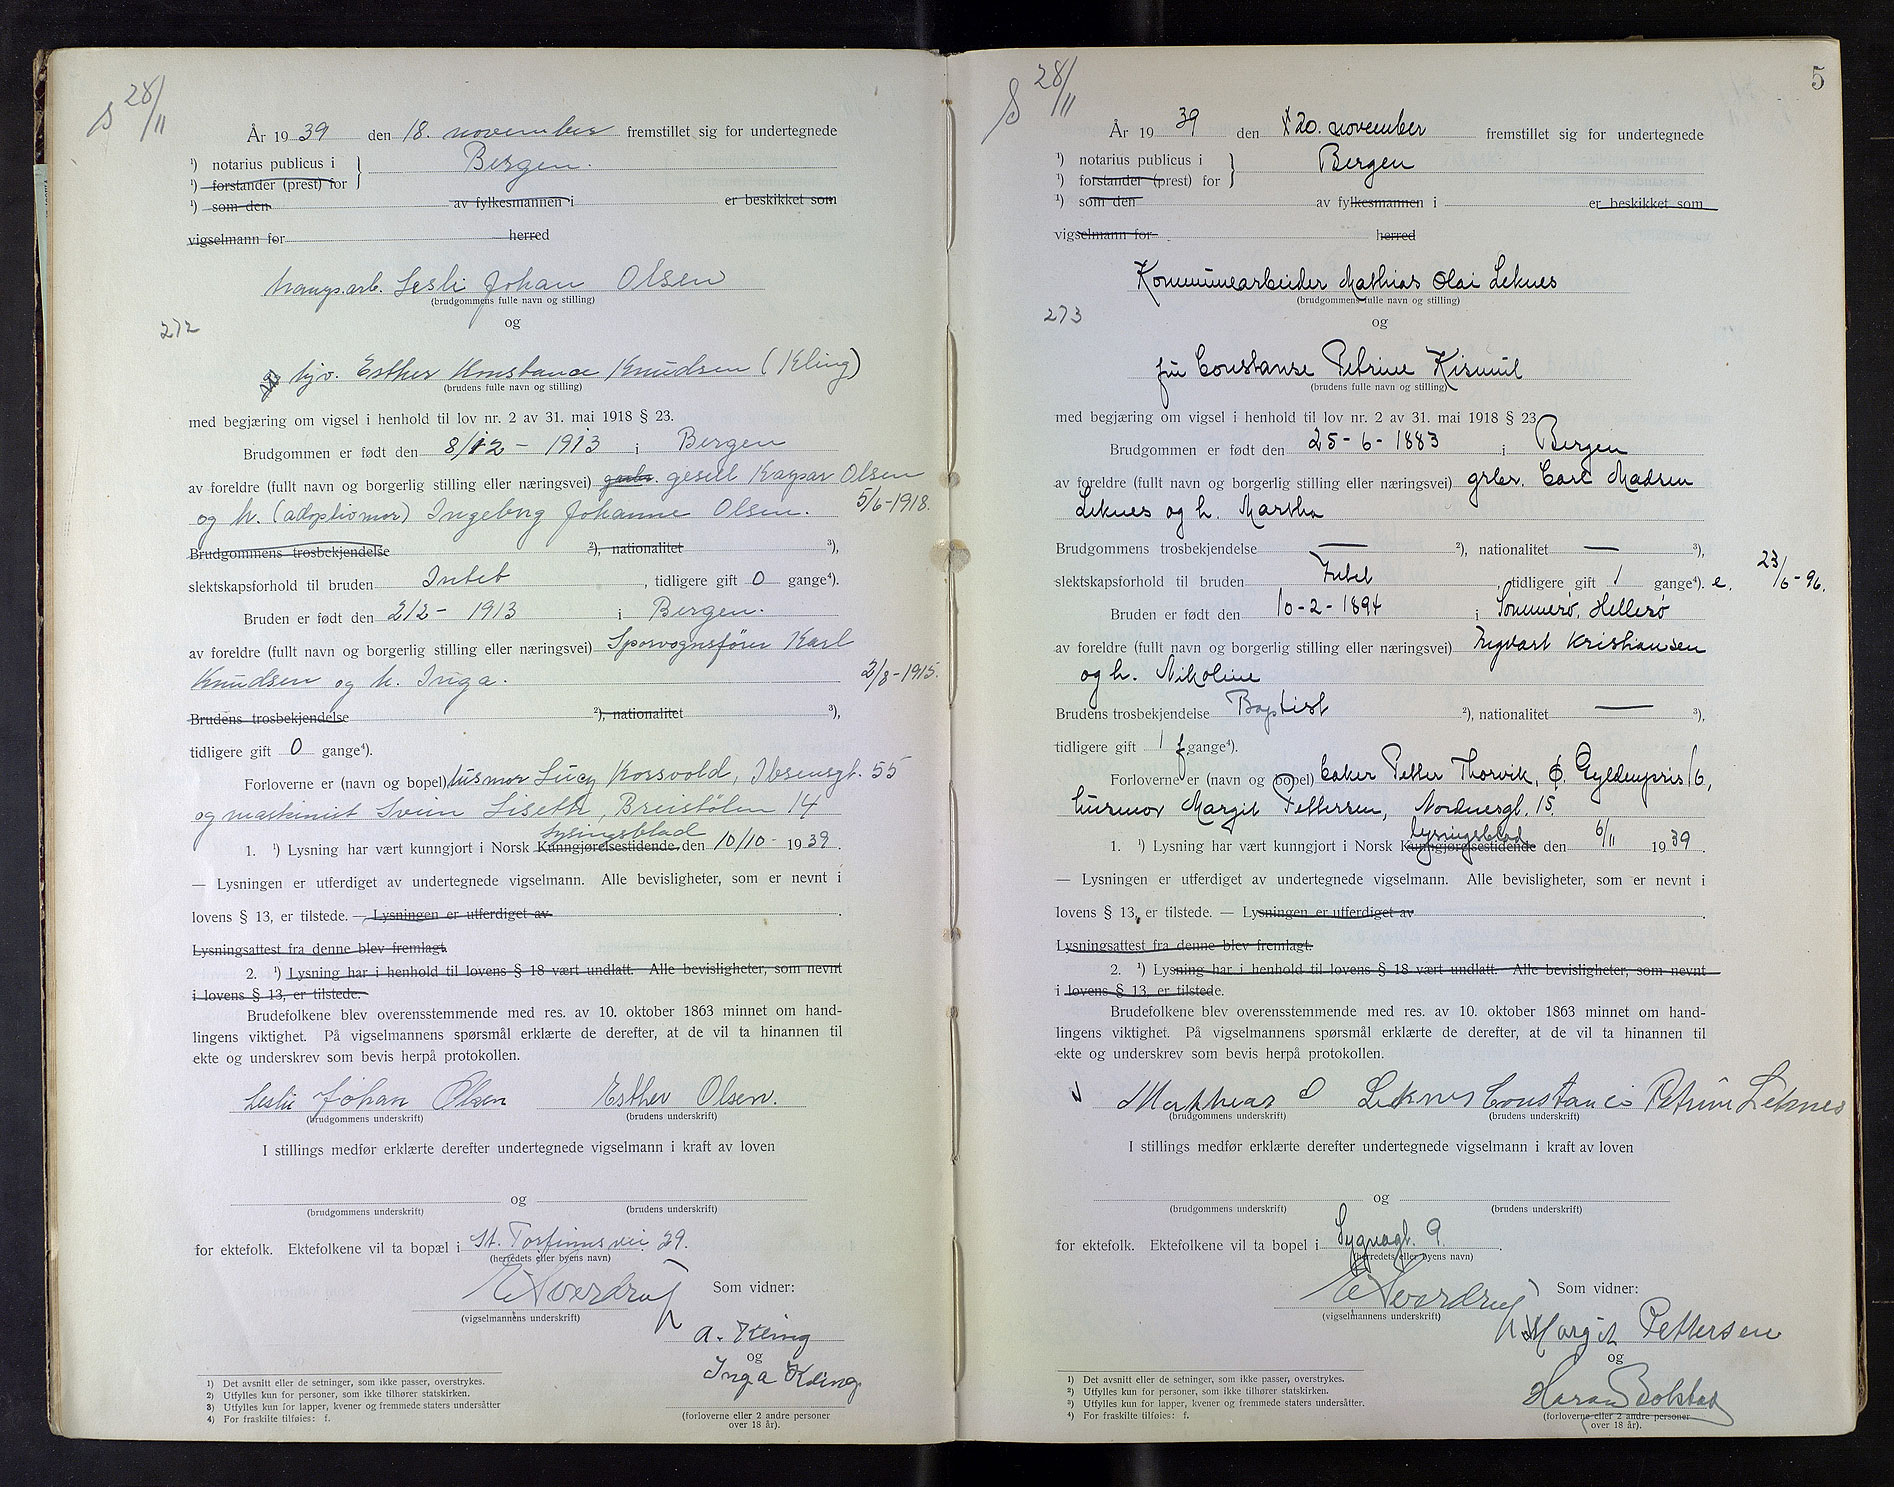 28/11
År 1939 den 18. november fremstillet sig for undertegnede
¹) notarius publicus i } Bergen.
¹) forstander (prest) for
¹) som den av fylkesmannen i er beskikket som
vigselmann for herred
Lesli Johan Olsen
(brudgommens fulle navn og stilling)
272
og
hjv. Esther Konstance Knudsen (Kling)
(brudens fulle navn og stilling)
med begjæring om vigsel i henhold til lov nr. 2 av 31. mai 1918 § 23.
Brudgommen er født den 8/12 - 1913 i Bergen
av foreldre (fullt navn og borgerlig stilling eller næringsvei) gesell Kaspar Olsen
og h. (adoptivmor) Ingeborg Johanne Olsen. 5/6-1918.
Brudgommens trosbekjendelse ²), nationalitet ³),
slektskapsforhold til bruden Intet, tidligere gift 0 gange⁴).
Bruden er født den 2/2 - 1913 i Bergen.
av foreldre (fullt navn og borgerlig stilling eller næringsvei) Sporvognsfører Karl
Knudsen og h. Inga. 2/8-1915.
Brudens trosbekjendelse ²), nationalitet ³),
tidligere gift 0 gange⁴).
Forloverne er (navn og bopel) husmor Lucy Korsvold, Ibsensgt. 55
og maskinist Svein Liseth, Breistølen 14
lysingsblad
1. ¹) Lysning har vært kunngjort i Norsk Kunngjørelsestidende den 10/10 - 1939.
— Lysningen er utferdiget av undertegnede vigselmann. Alle bevisligheter, som er nevnt i
lovens § 13, er tilstede. — Lysningen er utferdiget av
Lysningsattest fra denne blev fremlagt.
2. ¹) Lysning har i henhold til lovens § 18 vært undlatt. Alle bevisligheter, som nevnt
i lovens § 13, er tilstede.
Brudefolkene blev overensstemmende med res. av 10. oktober 1863 minnet om hand-
lingens viktighet. På vigselmannens spørsmål erklærte de derefter, at de vil ta hinannen til
ekte og underskrev som bevis herpå protokollen.
Leslie Johan Olsen Esther Olsen.
(brudgommens underskrift) (brudens underskrift)
I stillings medfør erklærte derefter undertegnede vigselmann i kraft av loven
og
(brudgommens underskrift) (brudens underskrift)
for ektefolk. Ektefolkene vil ta bopæl i St. Torfinns vei 29.
(herredets eller byens navn)
Som vidner:
(vigselmannens underskrift)
A. Kling
og
Inga Kling
¹) Det avsnitt eller de setninger, som ikke passer, overstrykes.
²) Utfylles kun for personer, som ikke tilhører statskirken.
³) Utfylles kun for lapper, kvener og fremmede staters undersåtter
⁴) For fraskilte tilføies: f.
(forloverne eller 2 andre personer
over 18 år).
5
28/11
År 1939 den 20. november fremstillet sig for undertegnede
¹) notarius publicus i } Bergen
¹) forstander (prest) for
¹) som den av fylkesmannen i er beskikket som
vigselmann for herred
Kommunearbeider Mathias Olai Leknes
(brudgommens fulle navn og stilling)
273
og
fru Constanse Petrine Kismul
(brudens fulle navn og stilling)
med begjæring om vigsel i henhold til lov nr. 2 av 31. mai 1918 § 23.
Brudgommen er født den 25-6-1883 i Bergen
av foreldre (fullt navn og borgerlig stilling eller næringsvei) grbr. Carl Madsen
Leknes og h. Martha
Brudgommens trosbekjendelse — ²), nationalitet — ³),
slektskapsforhold til bruden Intet, tidligere gift 1 gange⁴). e. 23/6-96.
Bruden er født den 10-2-1894 i Sommerø, Hellesø
av foreldre (fullt navn og borgerlig stilling eller næringsvei) Ingvart Kristiansen
og h. Nikoline
Brudens trosbekjendelse Baptist ²), nationalitet — ³),
tidligere gift 1 f gange⁴).
Forloverne er (navn og bopel) baker Petter Thorvik, Ø. Gyldenpris 16,
husmor Margit Pettersen, Nordnesgt. 15.
lysingsblad
1. ¹) Lysning har vært kunngjort i Norsk Kunngjørelsestidende den 6/11 1939.
— Lysningen er utferdiget av undertegnede vigselmann. Alle bevisligheter, som er nevnt i
lovens § 13, er tilstede. — Lysningen er utferdiget av
Lysningsattest fra denne blev fremlagt.
2. ¹) Lysning har i henhold til lovens § 18 vært undlatt. Alle bevisligheter, som nevnt
i lovens § 13, er tilstede.
Brudefolkene blev overensstemmende med res. av 10. oktober 1863 minnet om hand-
lingens viktighet. På vigselmannens spørsmål erklærte de derefter, at de vil ta hinannen til
ekte og underskrev som bevis herpå protokollen.
Mathias O Leknes Constance Petrine Leknes
(brudgommens underskrift) (brudens underskrift)
I stillings medfør erklærte derefter undertegnede vigselmann i kraft av loven
og
(brudgommens underskrift) (brudens underskrift)
for ektefolk. Ektefolkene vil ta bopel i Sygnagt. 9.
(herredets eller byens navn)
Som vidner:
(vigselmannens underskrift)
Margit Pettersen
og
¹) Det avsnitt eller de setninger, som ikke passer, overstrykes.
²) Utfylles kun for personer, som ikke tilhører statskirken.
³) Utfylles kun for lapper, kvener og fremmede staters undersåtter.
⁴) For fraskilte tilføies: f.
(forloverne eller 2 andre personer
over 18 år).